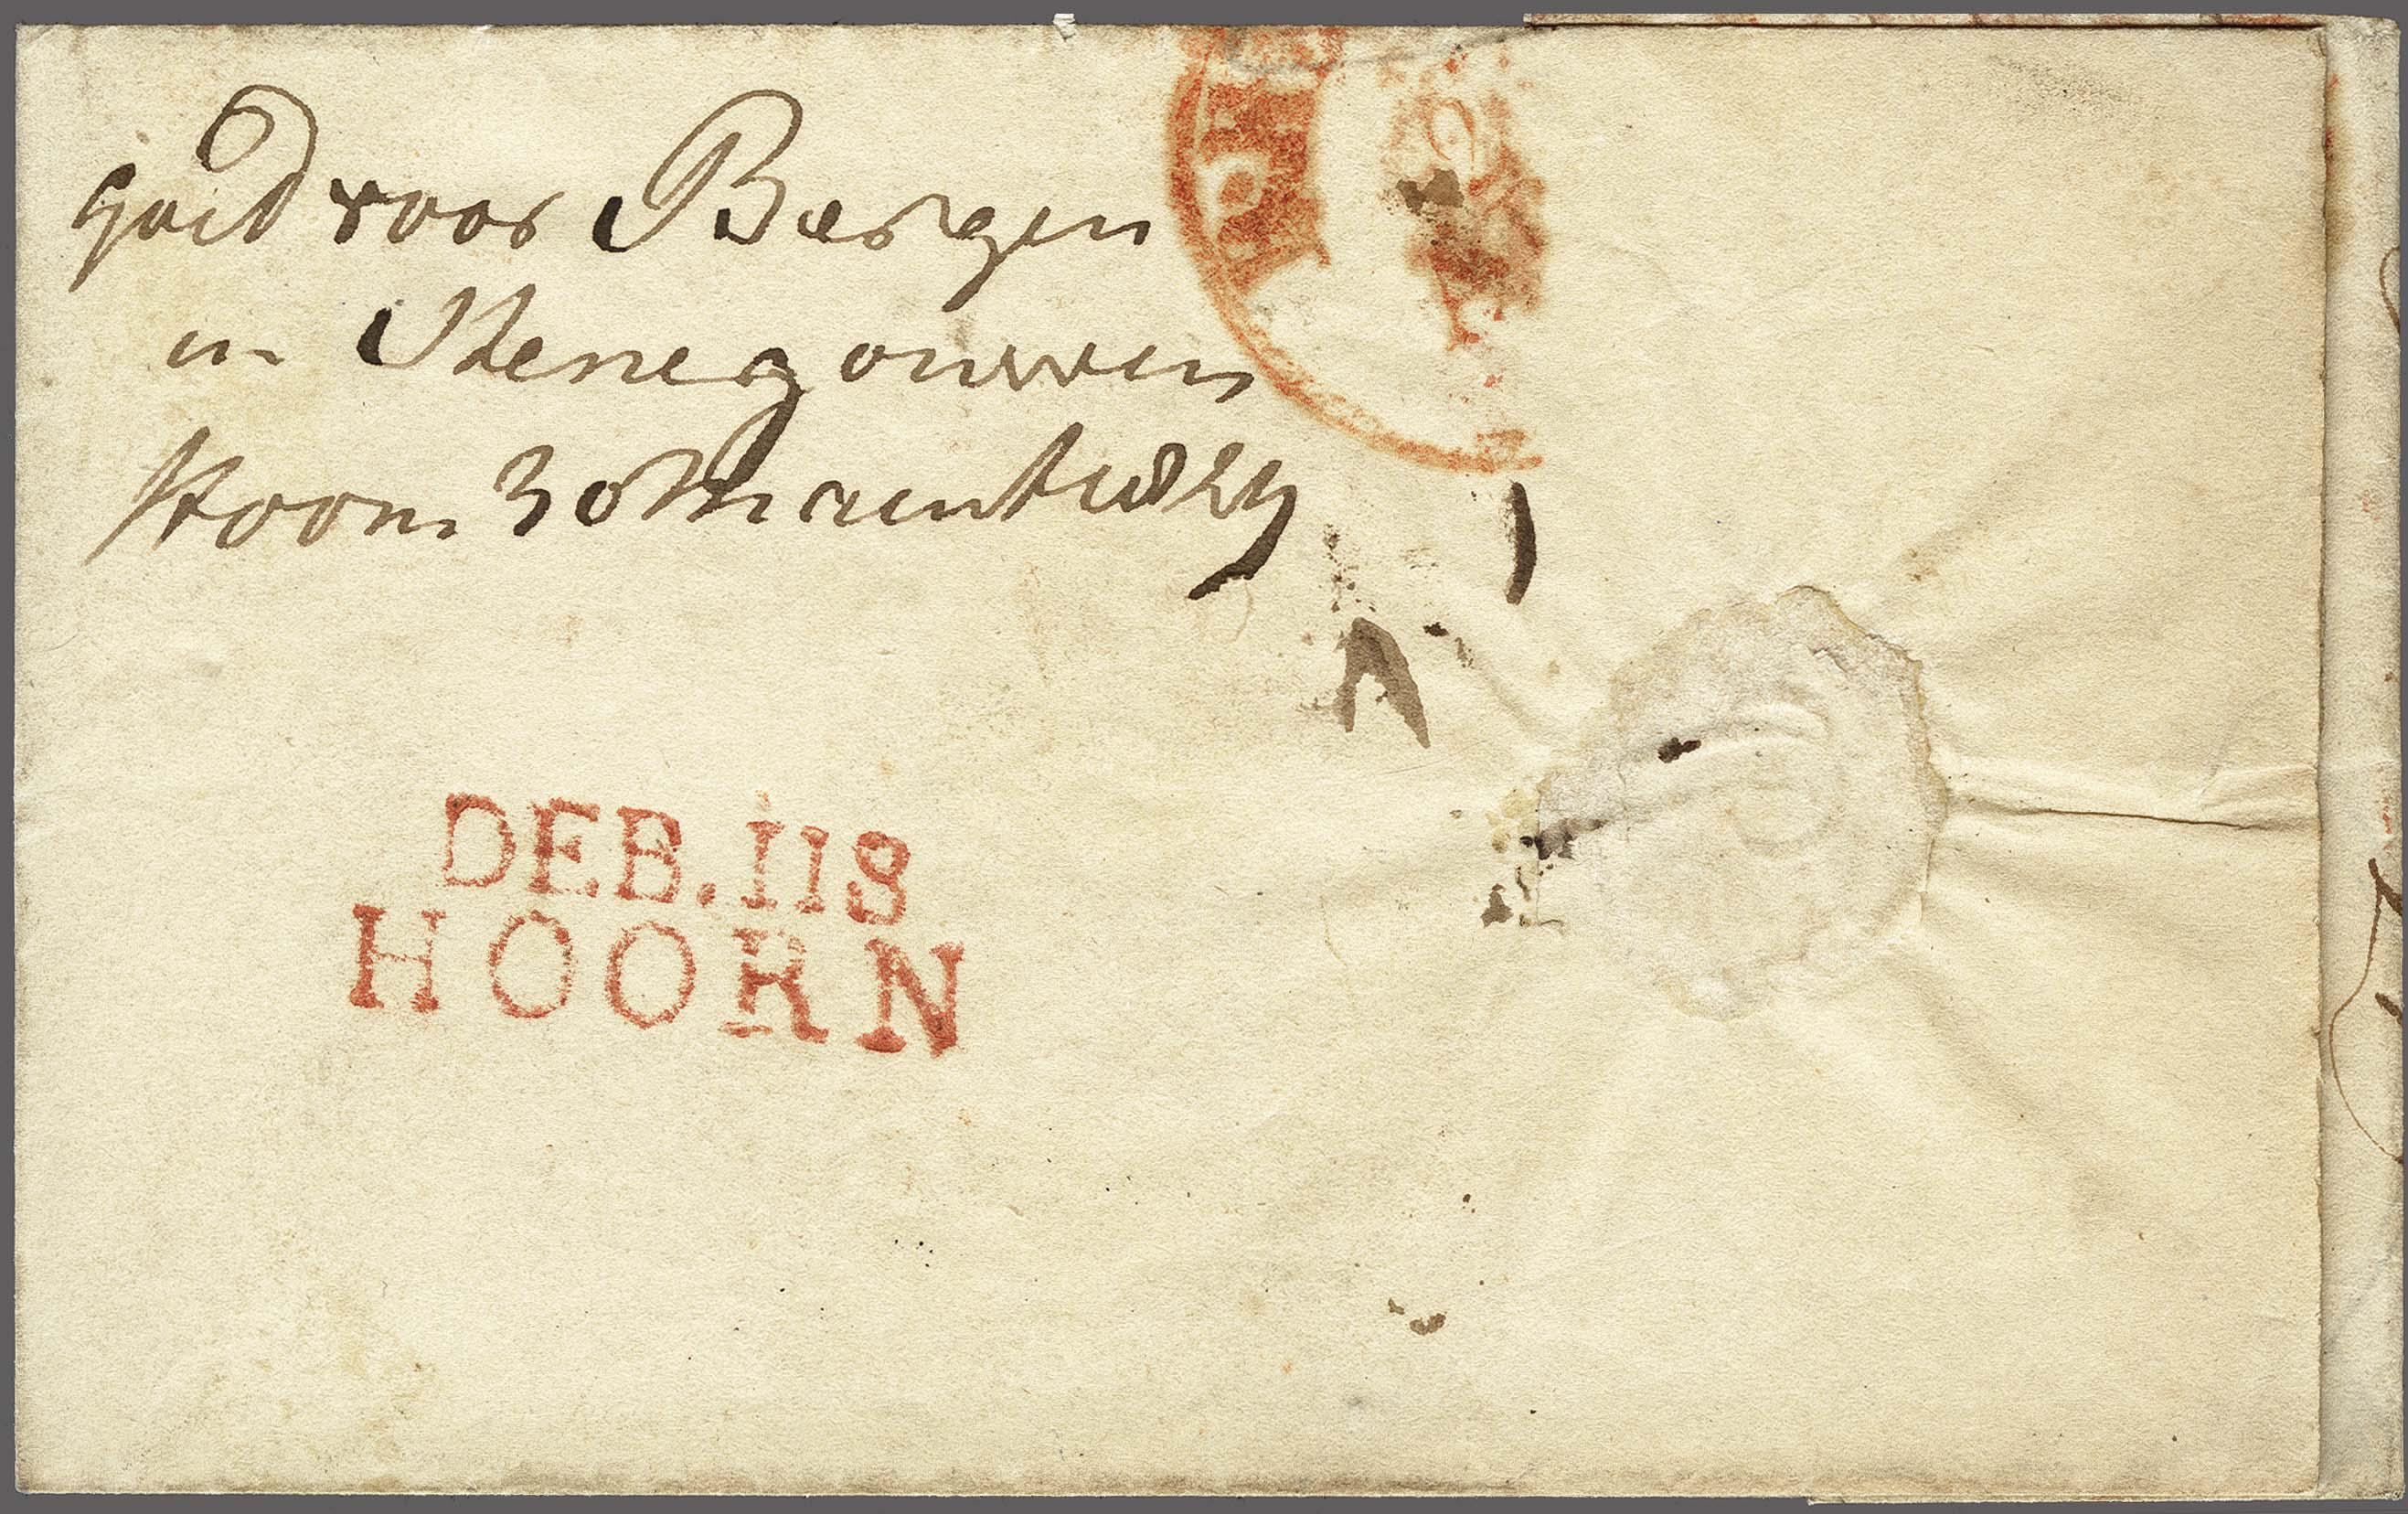 goed voor Bergen
in Henegouwen
Hoorn 30 Maart 1829
DEB. 118
HOORN